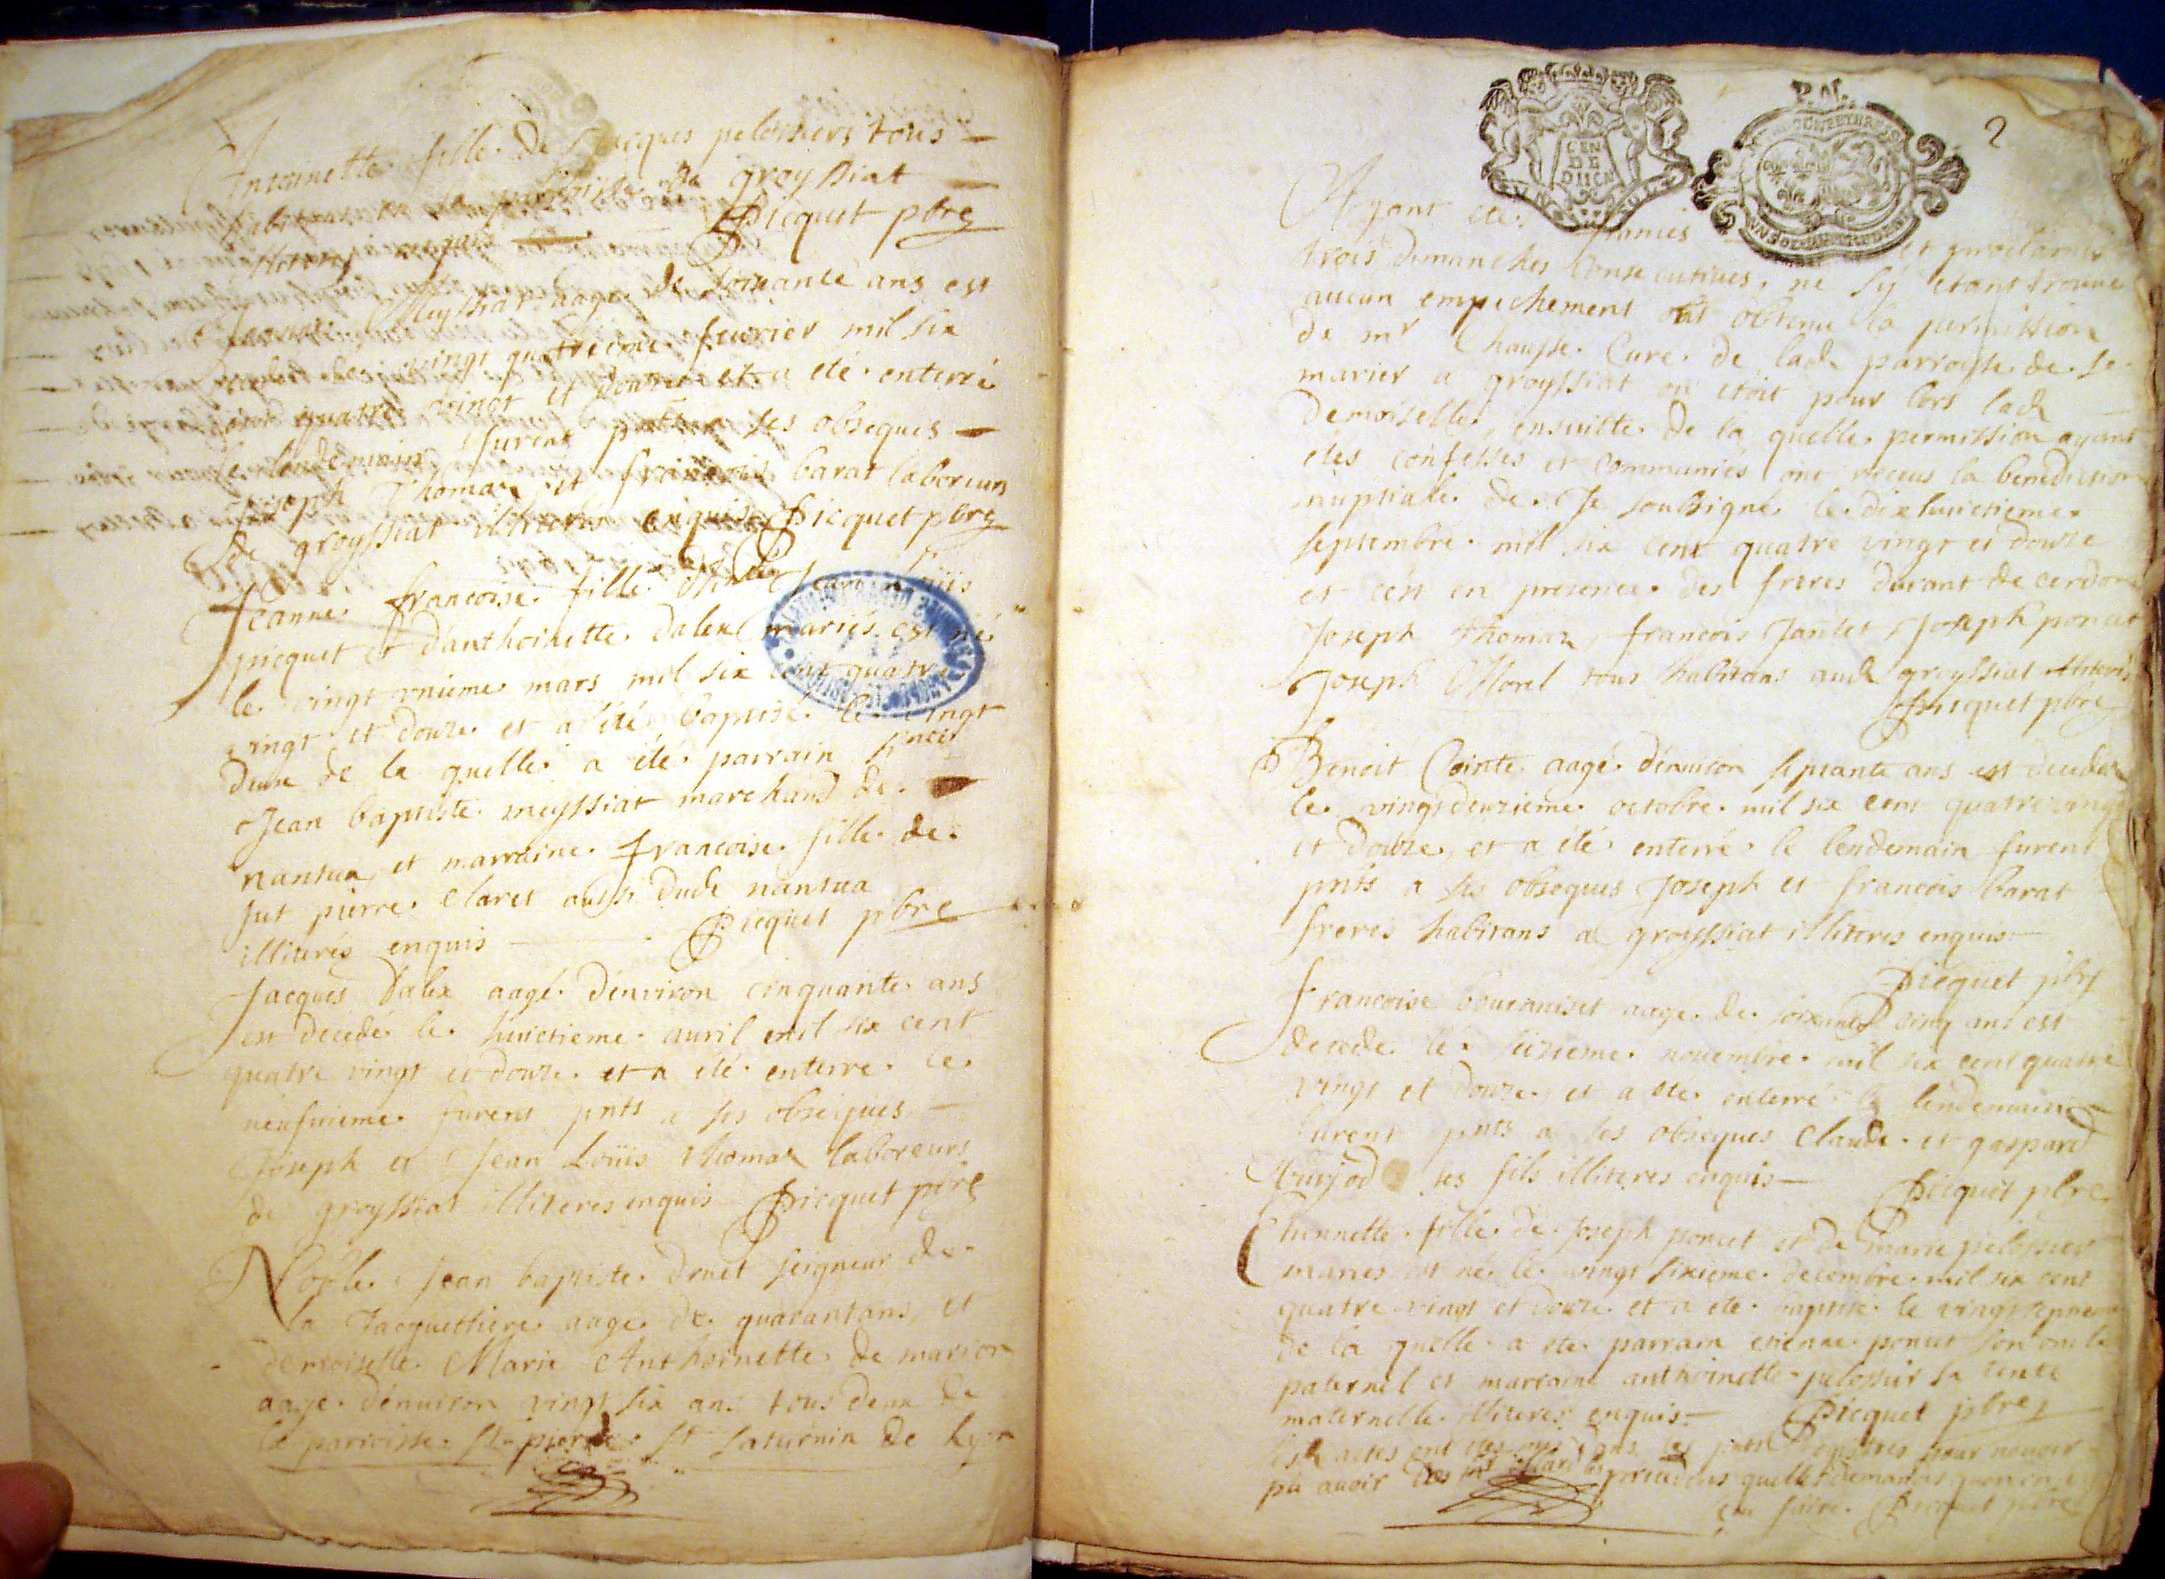 Antoinette fille de Jacques pelossiers tous
habitans de la parroisse de groyssiat
illiterés enquis Picquet pbre
Meyssiat aagé de soixante ans est
le vingt quatrieme feurier mil six
cent quatre vingt et douze et a eté enterré
le lendemain furent ses obseques
Joseph Thomaz et francois barat laboreurs
de groyssiat illiterés enquis Picquet pbre
Jeanne francoise fille Jean Loüis
picquet et d'anthoinette dalex mariés est né
le vingt unieme mars mil six cent quatre
vingt et douze et a été baptisé le vingt
deux de la quelle a été parrain
Jean baptiste meyssiat marchand de
nantua et marraine francoise fille de
fut pierre Claret aussi dud nantua
illiterés enquis Picquet pbre
Jacques dalex aagé d'enuiron cinquante ans
est decedé le huictieme auril mil six cent
quatre vingt et douze et a eté enterre le
neufuieme furent pnts a ses obseques
Joseph et Jean Loüis Thomaz laboreurs
de groyssiat illiteres enquis Picquet pbre
Noble Jean baptiste druet seigneur de
la Jacquettiere aagé de quarantans et
demoiselle Marie Anthoinette de marion
aage d'enuiron vingt six ans tous deux de
la parroisse St pierre St saturnin de Lyon
2
CEN
DE
DIJON
Ayant eté et proclamés
trois dimanches consecutiues, ne s'y etant trouué
aucun empechement ont obtenu la permission
de mr Chausse Curé de lad parroisse de se
marier a groyssiat ou etoit pour lors lad
demoiselle, ensuitte de la quelle permission ayant
etes confesses et communiés ont receus la benediction
nuptiale de Je soubsigné le dix huictieme
septembre mil six cent quatre vingt et douze
et c'est en presence des freres durant de cerdon
Joseph thomaz, francois Janlet, Joseph poncet
Joseph Morel tous habitans aud groyssiat illiterés
Picquet pbre
Benoit Cointe aagé d'enuiron septante ans est decedez
le vingtdeuzieme octobre mil six cent quatre vingt
et douze, et a été enterré le lendemain furent
pnts a ses obseques Joseph et francois barat
freres habitans a groyssiat illiteres enquis
Picquet pbre
francoise aage de soixante cinq ans est
decede le seizieme nouembre mil six cent quatre
vingt et douze, et a ete enterré le lendemain
furent pnts a ses obseques Claude et gaspard
ses fils illiteres enquis Picquet pbre
fille de Joseph poncet et de marie pelossier
mariés est né le vingt sixieme decembre mil six cent
quatre vingt et douze et a ete baptisé le vingtseptieme
de la quelle a ete parrain etienne poncet son oncle
paternel et marraine anthoinette pelossier sa tente
maternelle illiteres enquis Picquet pbre
actes ont etes dans les pnts Registres pour nauoir
pu auoir precedens
faire Picquet pbre